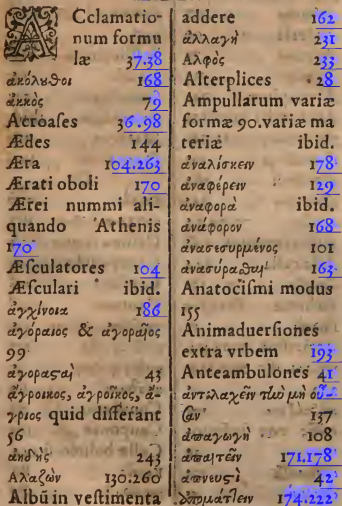 ACclamatio-
num formu
læ 37.38
ἀκόλυθοι 168
ἀκκὸς 79
Acroaſes 36.98
Ædes 144
Æra 104.263
Ærati oboli 170
Ærei nummi ali-
quando Athenis
170
Æſculatores 104
Æſculari ibid.
ἀγχίνοια 186
ἀγόραιος & ἀγοραῖος
99
ἀγοραςαὶ 43
ἄγροικος, ἀγροῖκος, ἄ-
γριος quid differant
56
ἀηδὴς 243
Ἀλαζὼν 130.260
Albū in veſtimenta
addere 162
ἀλλαγὴ 231
Ἀλφὸς 233
Alterplices 28
Ampullarum variæ
formæ 90.variæ ma
teriæ ibid.
ἀναλίσκειν 178
ἀναφέρειν 129
ἀναφορὰ ibid.
ἀνάφορον 168
ἀνασεσυρμένος 101
ἀνασύραϑαι 163
Anatociſmi modus
155
Animaduerſiones
extra vrbem 193
Anteambulones 41
ἀντιλαχεῖν τὴν μὴ
137
ἀπαγωγὴ 108
ἀπαιτεῖν 171.178
ἀπνευςὶ 42
174.222